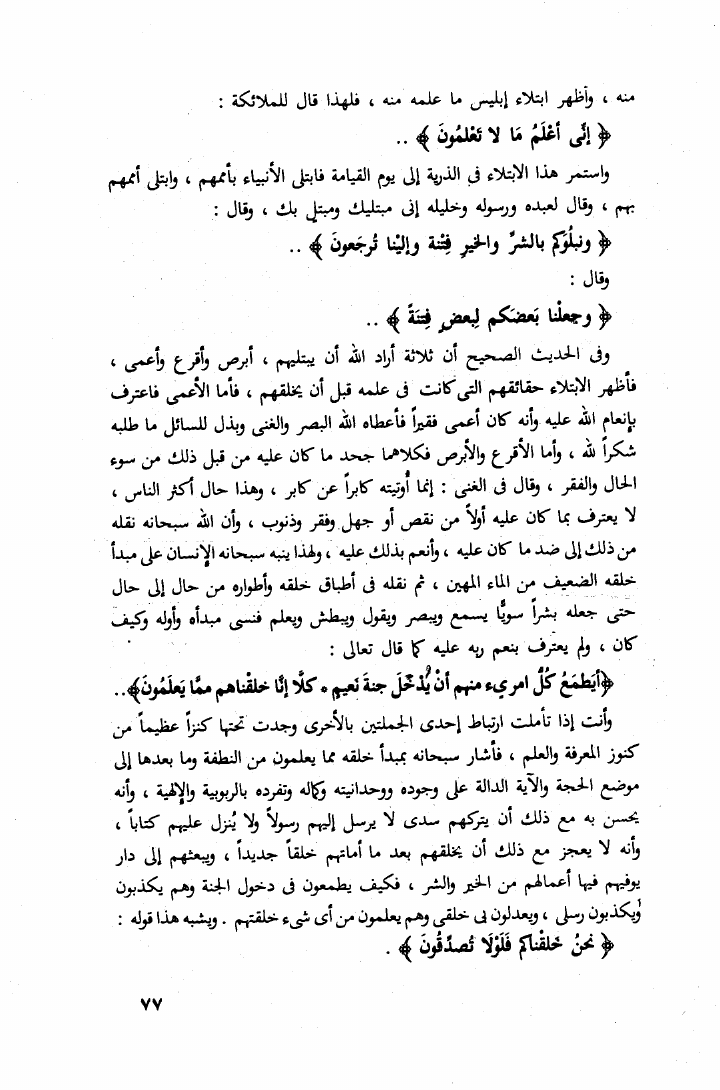 منه ، وأظهر ابتلاء إبليس ما علمه منه ، فلهذا قال للملائكة :
﴿ إِنِّى أَعْلَمُ مَا لَا تَعْلَمُونَ ﴾ ..
واستمر هذا الابتلاء فى الذرية إلى يوم القيامة فابتلى الأنبياء بأممهم ، وابتلى أممهم
بهم ، وقال لعبده ورسوله وخليله إنى مبتليك ومبتلٍ بك ، وقال :
﴿ ونبلُوَكم بالشرِّ والخيرِ فِتْنة وإليْنا تُرجَعونَ ﴾ ..
وقال :
﴿ وجعلْنا بَعضَكم لِبعضٍ فِتنَةً ﴾ ..
وفى الحديث الصحيح أن ثلاثة أراد الله أن يبتليهم ، أبرص وأقرع وأعمى ،
فأظهر الابتلاء حقائقهم التى كانت فى علمه قبل أن يخلقهم ، فأما الأعمى فاعترف
بإنعام الله عليه وأنه كان أعمى فقيراً فأعطاه الله البصر والغنى وبذل للسائل ما طلبه
شكراً لله ، وأما الأقرع والأبرص فكلاهما جحد ما كان عليه من قبل ذلك من سوء
الحال والفقر ، وقال فى الغنى : إنما أُوتيته كابراً عن كابر ، وهذا حال أكثر الناس ،
لا يعترف بما كان عليه أولاً من نقص أو جهل وفقر وذنوب ، وأن الله سبحانه نقله
من ذلك إلى ضد ما كان عليه ، وأنعم بذلك عليه ، ولهذا ينبه سبحانه الإنسان على مبدأ
خلقه الضعيف من الماء المهين ، ثم نقله فى أطباق خلقه وأطواره من حال إلى حال
حتى جعله بشراً سويًّا يسمع ويبصر ويقول ويبطش ويعلم فنسى مبدأه وأوله وكيف
كان ، ولم يعترف بنعم ربه عليه كما قال تعالى :
﴿أيَطمَعُ كُلُّ امرىء منهم أنْ يُدْخَلَ جنةَ نَعيم ٥ كلَّا إنَّا خلقْناهم ممَّا يَعلَمُونَ﴾..
وأنت إذا تأملت ارتباط إحدى الجملتين بالأخرى وجدت تحتها كنزاً عظيماً من
كنوز المعرفة والعلم ، فأشار سبحانه بمبدأ خلقه مما يعلمون من النطفة وما بعدها إلى
موضع الحجة والآية الدالة على وجوده ووحدانيته وكماله وتفرده بالربوبية والإلهية ، وأنه
يحسن به مع ذلك أن يتركهم سدى لا يرسل إليهم رسولاً ولا يُنزل عليهم كتاباً ،
وأنه لا يعجز مع ذلك أن يخلقهم بعد ما أماتهم خلقاً جديداً ، ويبعثهم إلى دار
يوفيهم فيها أعمالهم من الخير والشر ، فكيف يطمعون فى دخول الجنة وهم يكذبون
ويكذبون رسلى ، ويعدلون بى خلقى وهم يعلمون من أى شىء خلقتهم . ويشبه هذا قوله :
﴿ نحنُ خَلقْناكم فَلَوْلَا تُصدِّقُونَ ﴾ .
٧٧